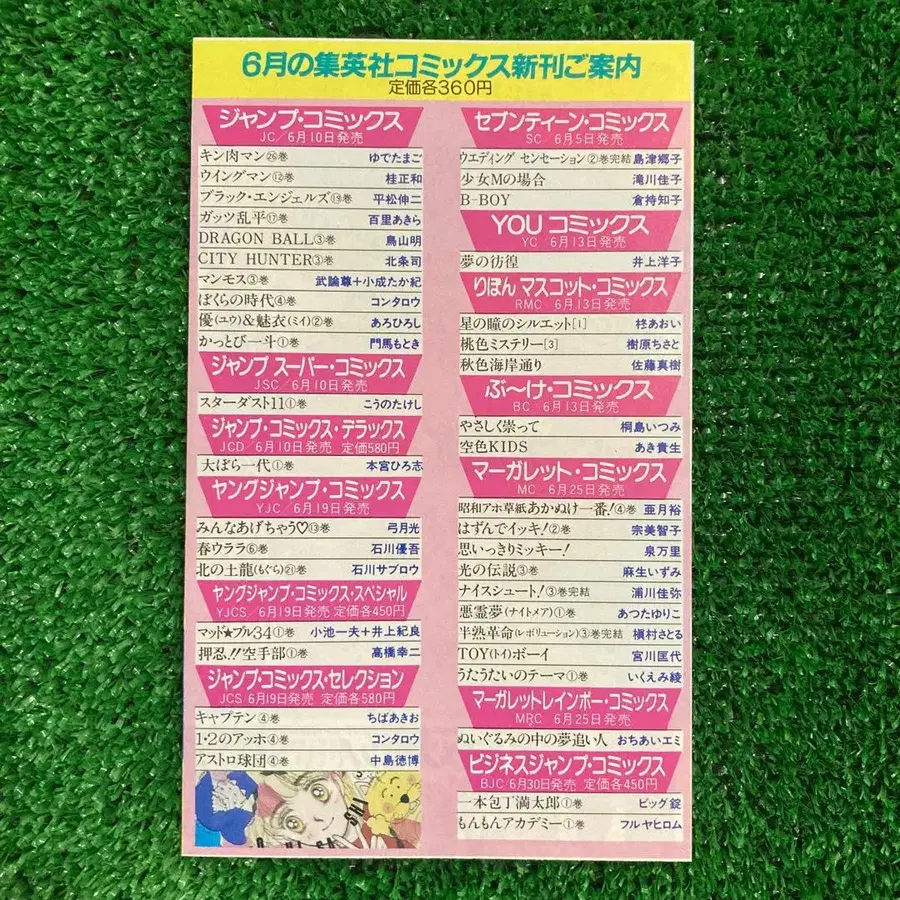 6月の集英社コミックス新刊ご案内
定価各360円
ジャンプ・コミックス
JC/6月10日発売
キン肉マン㉖巻 ゆでたまご
ウイングマン⑫巻 桂正和
ブラック・エンジェルズ⑲巻 平松伸二
ガッツ乱平⑰巻 百里あきら
DRAGON BALL③巻 鳥山明
CITY HUNTER③巻 北条司
マンモス③巻 武論尊+小成たか紀
ぼくらの時代④巻 コンタロウ
優(ユウ)&魅衣(ミイ)②巻 あろひろし
かっとび一斗①巻 門馬もとき
ジャンプ スーパー・コミックス
JSC/6月10日発売
スターダスト11①巻 こうのたけし
ジャンプ・コミックス・デラックス
JCD/6月10日発売 定価580円
大ぼら一代①巻 本宮ひろ志
ヤングジャンプ・コミックス
YJC/6月19日発売
みんなあげちゃう♡⑬巻 弓月光
春ウララ⑥巻 石川優吾
北の土龍(もぐら)㉑巻 石川サブロウ
ヤングジャンプ・コミックス・スペシャル
YJCS/6月19日発売 定価各450円
マッド★ブル34①巻 小池一夫+井上紀良
押忍!!空手部①巻 高橋幸二
ジャンプ・コミックス・セレクション
JCS 6月19日発売 定価各580円
キャプテン④巻 ちばあきお
1・2のアッホ④巻 コンタロウ
アストロ球団④巻 中島徳博
セブンティーン・コミックス
SC/6月5日発売
ウエディング センセーション②巻完結 島津郷子
少女Mの場合 滝川佳子
B-BOY 倉持知子
YOU コミックス
YC 6月13日発売
夢の彷徨 井上洋子
りぼん マスコット・コミックス
RMC 6月13日発売
星の瞳のシルエット[1] 柊あおい
桃色ミステリー[3] 樹原ちさと
秋色海岸通り 佐藤真樹
ぶ〜け・コミックス
BC/6月13日発売
やさしく祟って 桐島いつみ
空色KIDS あき貴生
マーガレット・コミックス
MC/6月25日発売
昭和アホ草紙あかぬけ一番!④巻 亜月裕
はずんでイッキ!②巻 宗美智子
思いっきりミッキー! 泉万里
光の伝説③巻 麻生いずみ
ナイスシュート!③巻完結 浦川佳弥
悪霊夢(ナイトメア)①巻 あつたゆりこ
半熟革命(レボリューション)③巻完結 槇村さとる
TOY(トイ)ボーイ 宮川匡代
うたうたいのテーマ①巻 いくえみ綾
マーガレットレインボー・コミックス
MRC 6月25日発売
ぬいぐるみの中の夢追い人 おちあいエミ
ビジネスジャンプ・コミックス
BJC/6月30日発売 定価各450円
一本包丁満太郎①巻 ビッグ錠
もんもんアカデミー①巻 フルヤヒロム